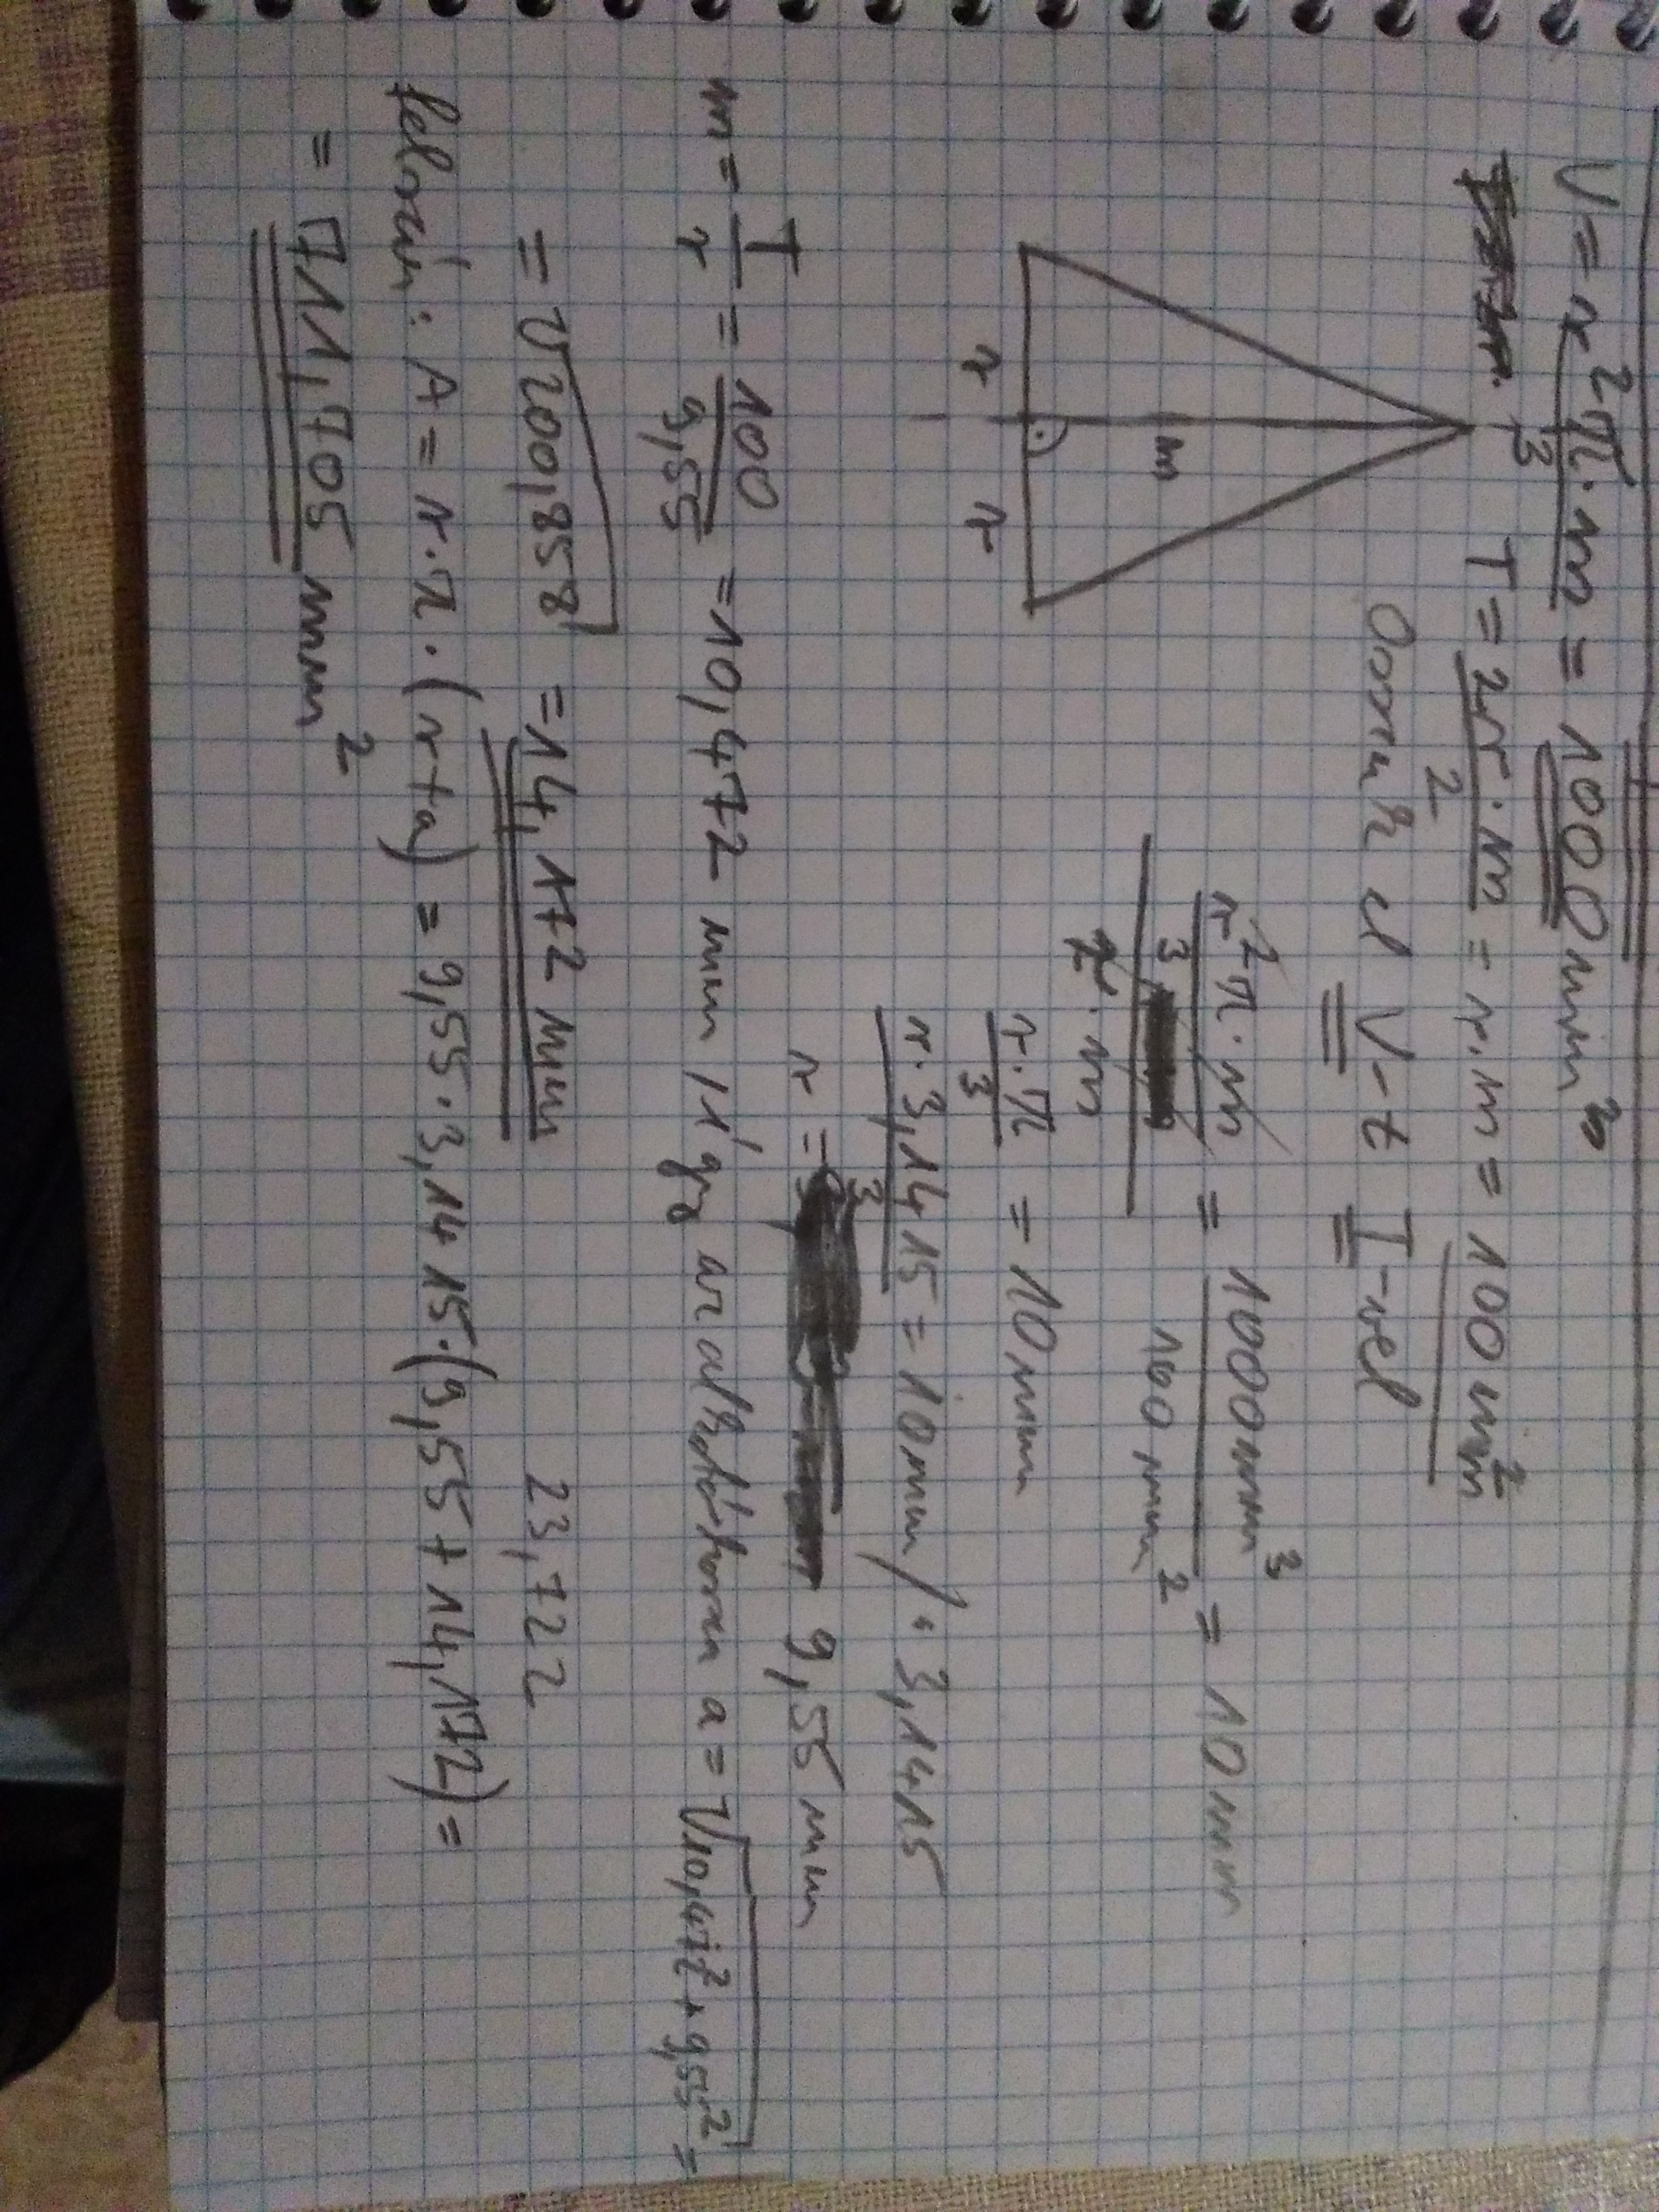 V = r²π·m/3 = 1000 mm³
T = 2r·m/2 = r·m = 100 mm²
Osszuk el V-t T-vel
r²π·m/3 / r·m = 1000 mm³/100 mm² = 10 mm
m
r r
r·π/3 = 10 mm
r·3,1415/3 = 10 mm /: 3,1415
r = 9,55 mm
m = T/r = 100/9,55 = 10,472 mm így az alkotó hossza a = √10,472² + 9,55² =
= √200,858 = 14,172 mm
23,722
felszín: A = r·π·(r+a) = 9,55·3,1415·(9,55 + 14,172) =
= 711,705 mm²